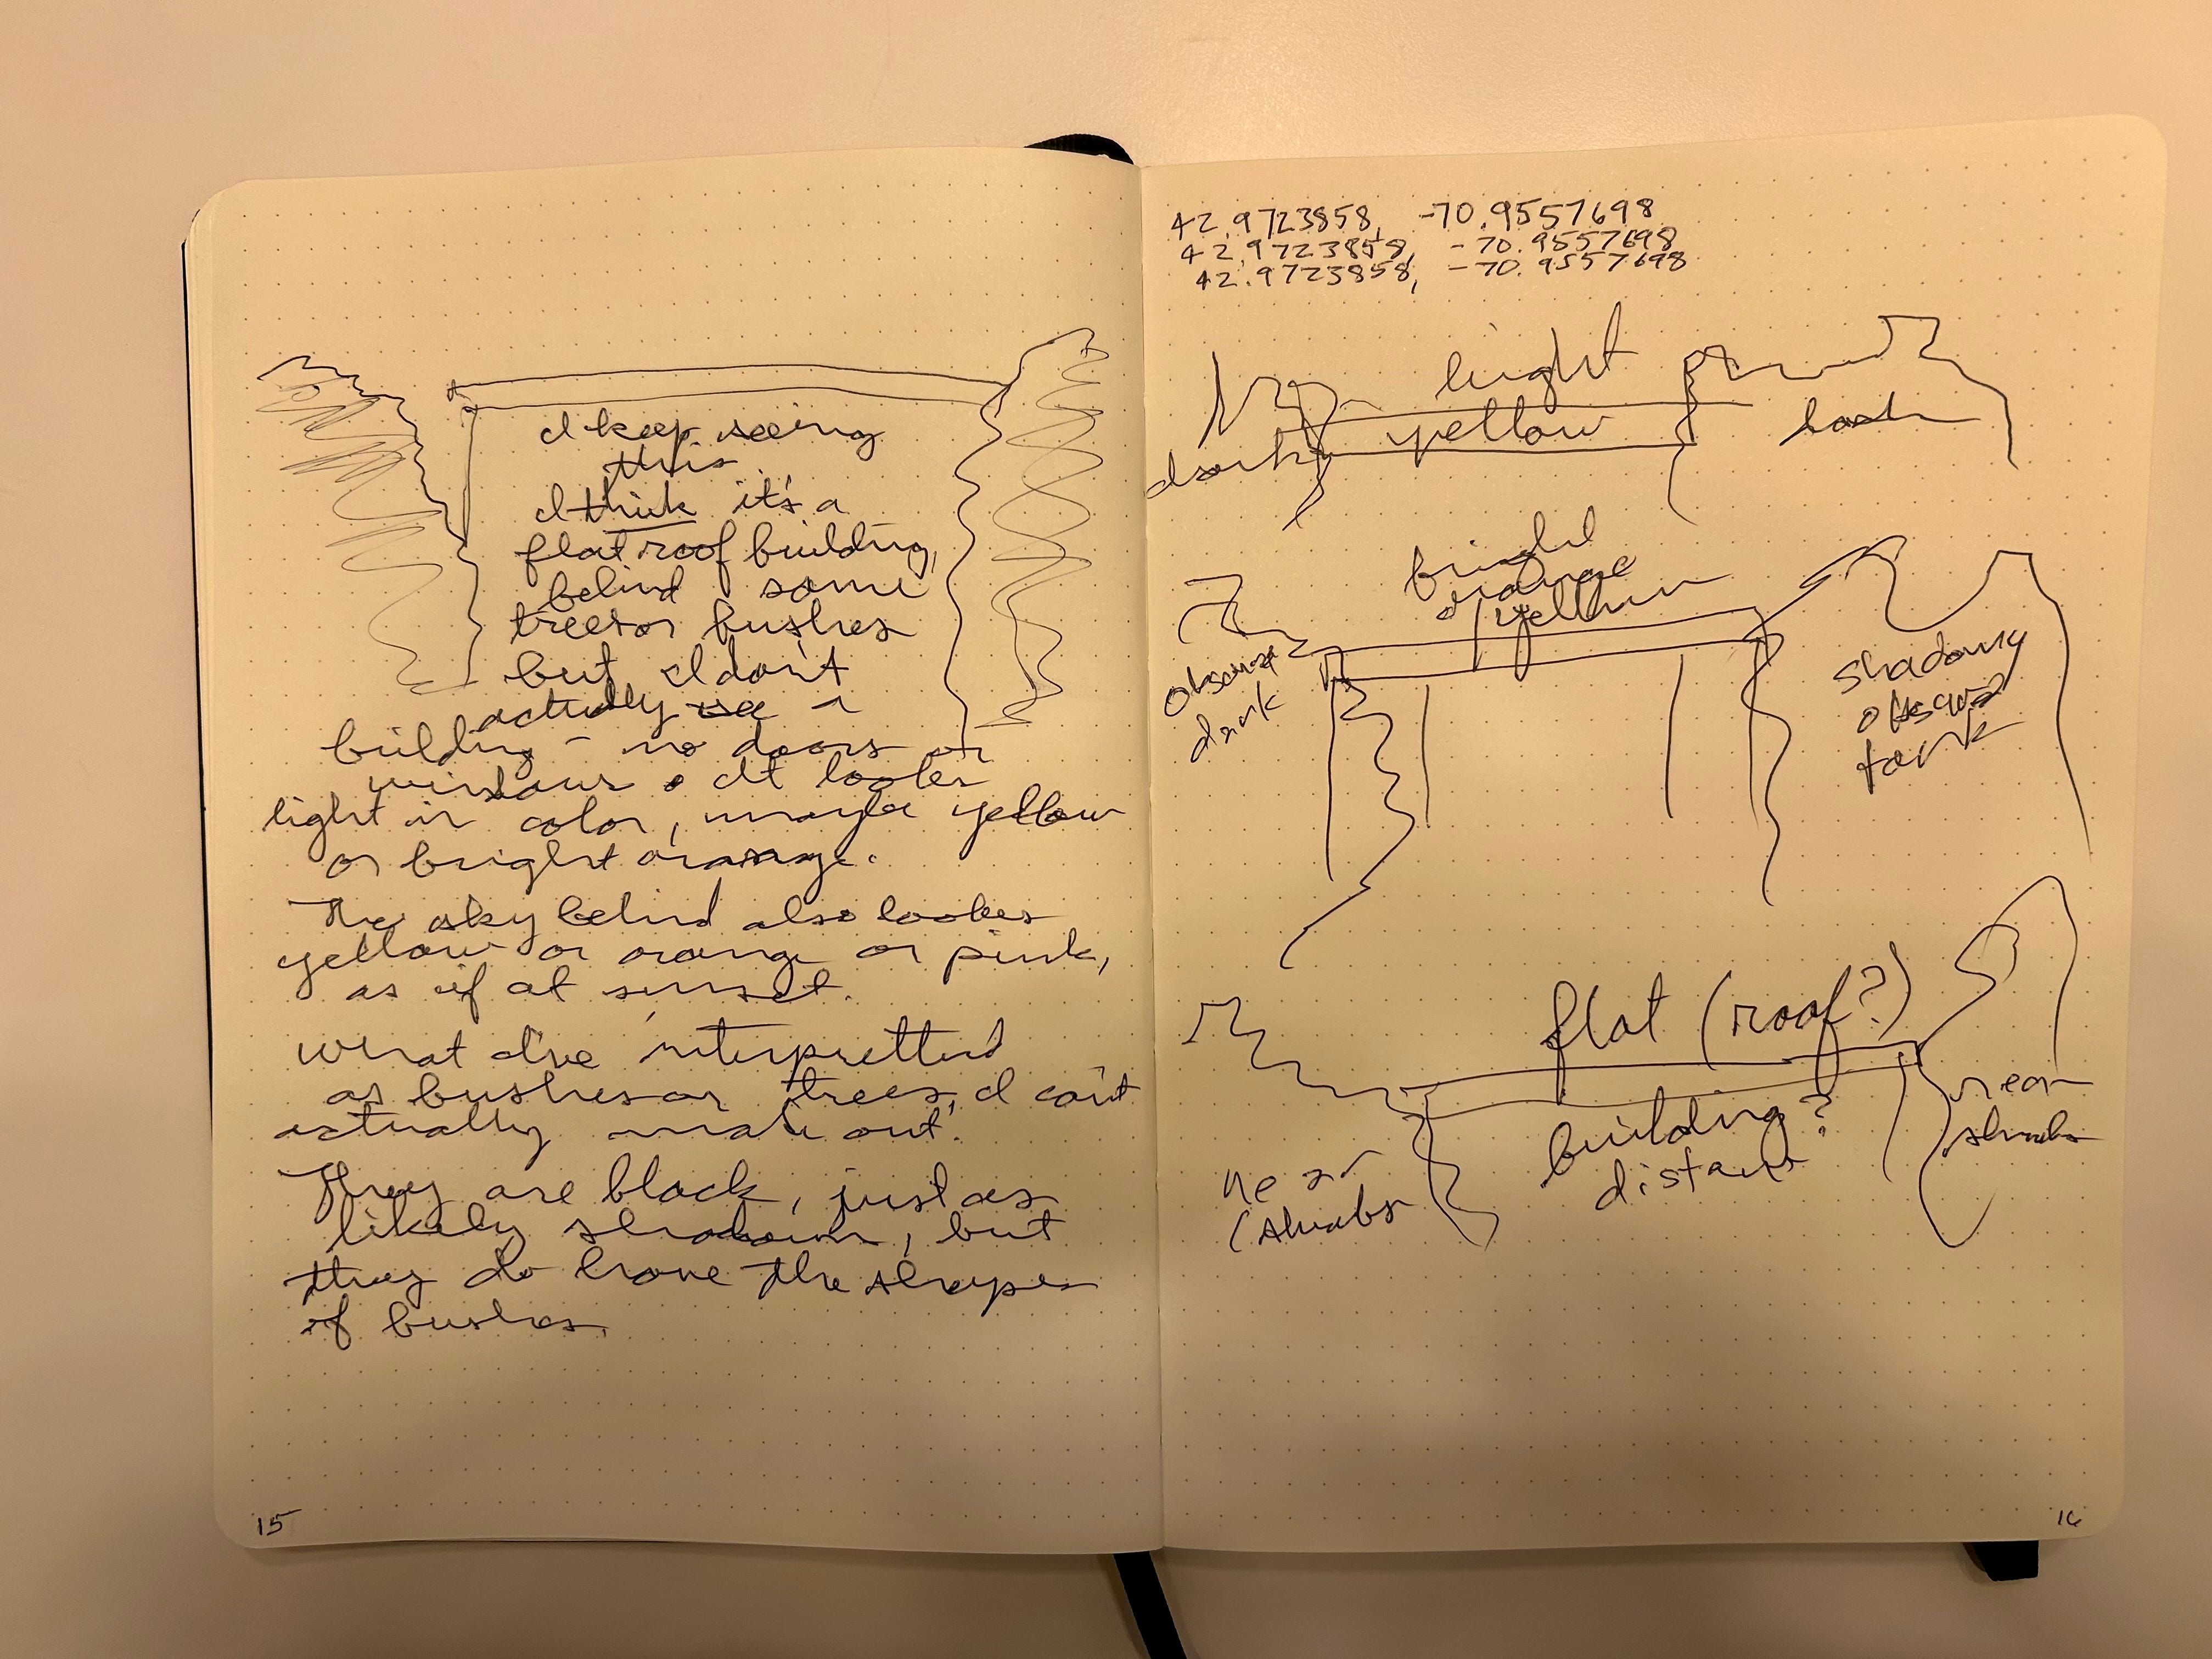 I keep seeing
this
I think it's a
flat roof building,
behind some
trees or bushes
but I don't
actually see a
building - no doors or
windows. It looks
light in color, maybe yellow
or bright orange.
The sky behind also looks
yellow or orange or pink,
as if at sunset.
What I've interpretted
as bushes or trees, I can't
actually make out.
They are black, just as
likely shadows, but
they do have the shape
of bushes.
15
42.9723858, -70.9557698
42.9723858, -70.9557698
42.9723858, -70.9557698
light
yellow
dark
bright
orange
yellow
obscure
dark
shadowy
obscured
flat (roof?)
building?
distant
near
shrubs
near
shrubs
16